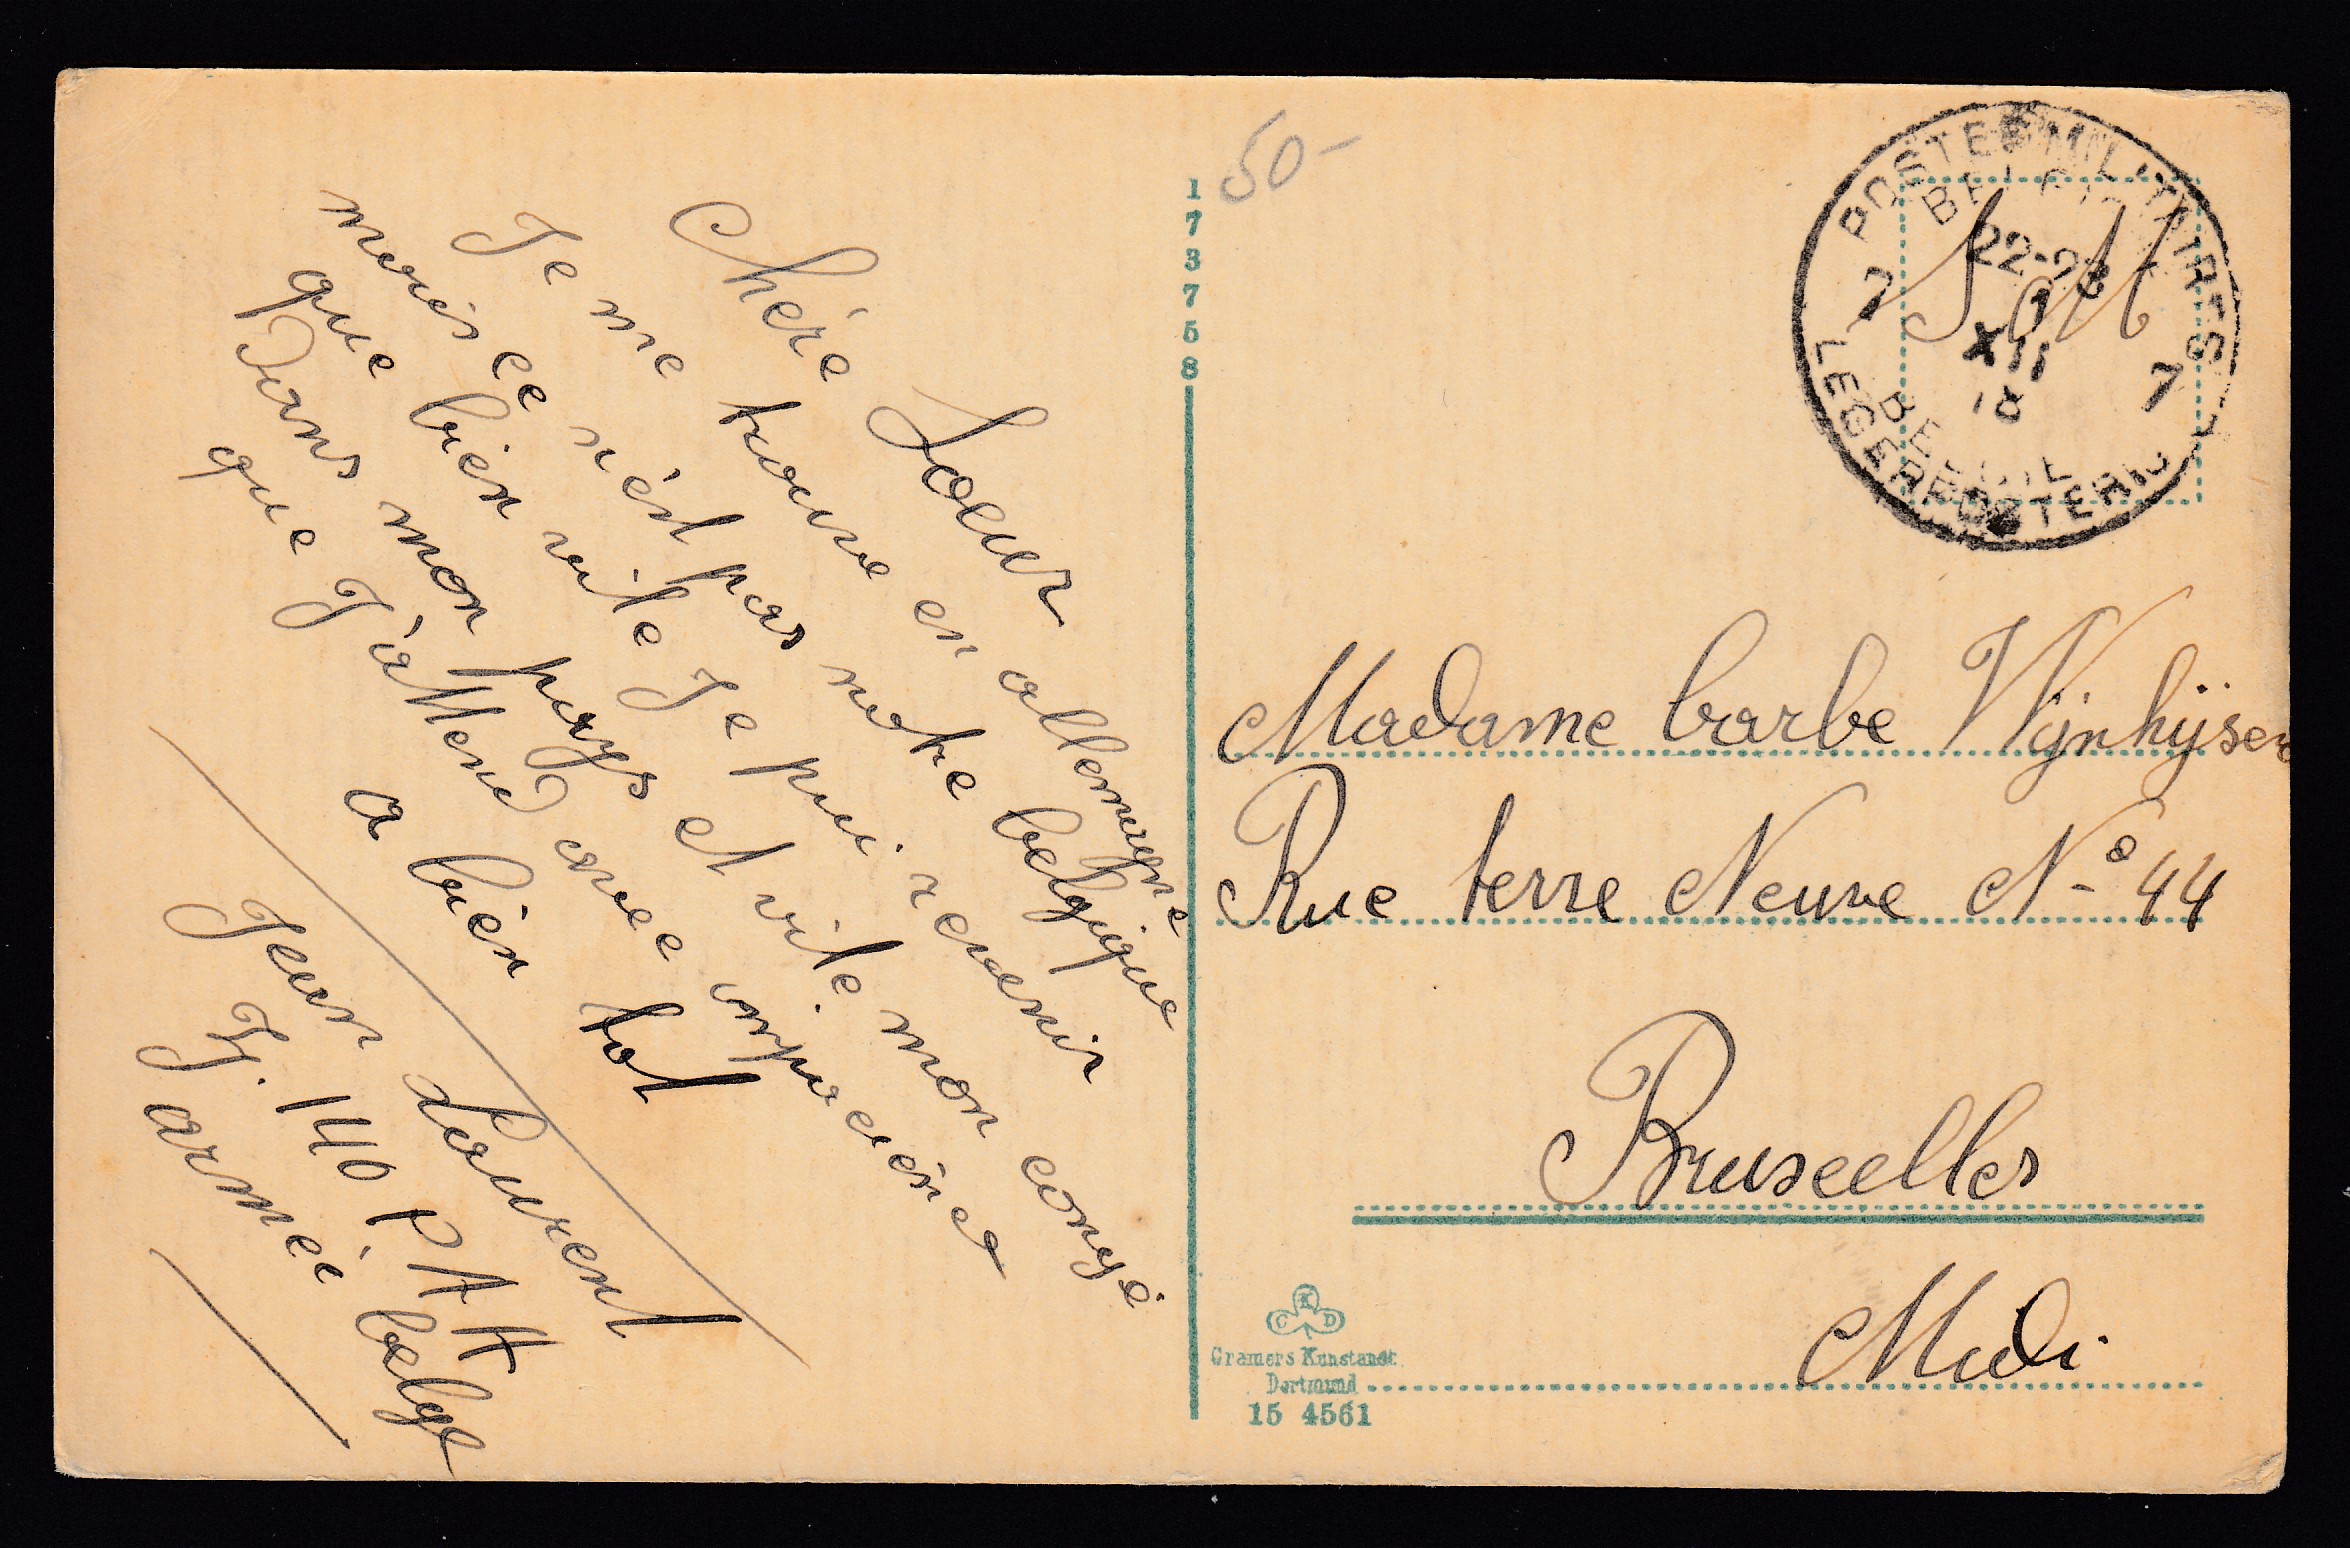 Chère Soeur
Je me trouve en allemagne
mais ce n'est pas notre belgique
que bien vite Je pui revenir
Dans mon pays et vite mon congé
que J'attend avec impacience
a bien tot
Jean Laurent
J. 140 P A H
armée belge
1
7
3
7
5
8
50-
POSTES MILITAIRES
BELGIQUE
S M
22-23
1
XII
18
7
7
BELGIE
LEGERPOSTERIJ
Madame barbe Wijnhijsen
Rue terre Neuve Nº 44
Bruxelles
Midi
C K D
Cramers Kunstanst.
Dortmund
15 4561